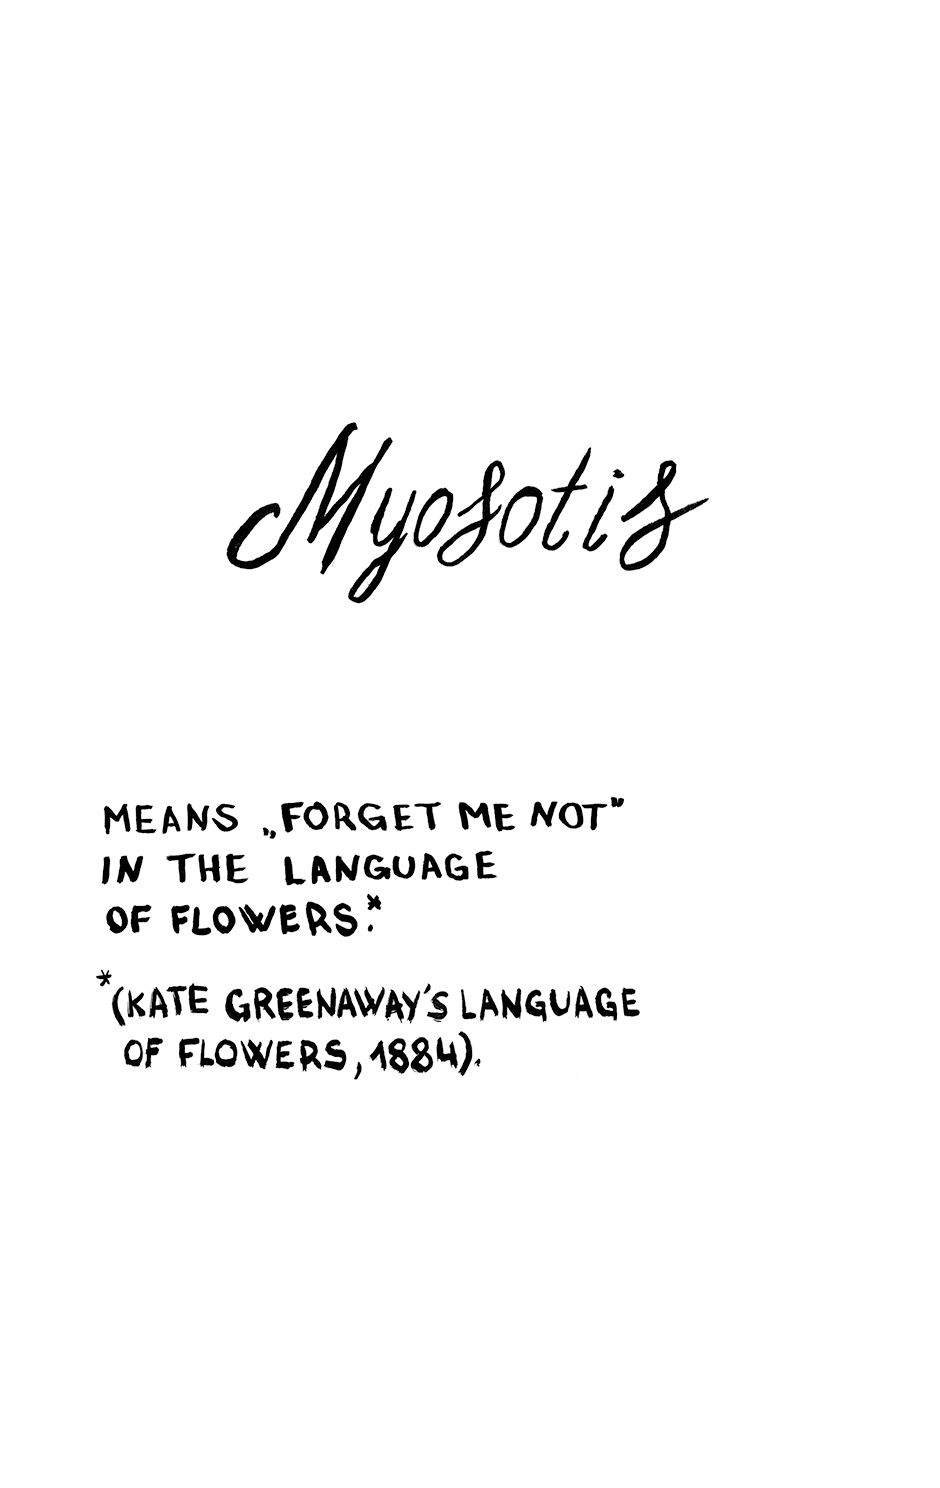 Myosotis
MEANS „FORGET ME NOT”
IN THE LANGUAGE
OF FLOWERS.*
*(KATE GREENAWAY'S LANGUAGE
OF FLOWERS, 1884).